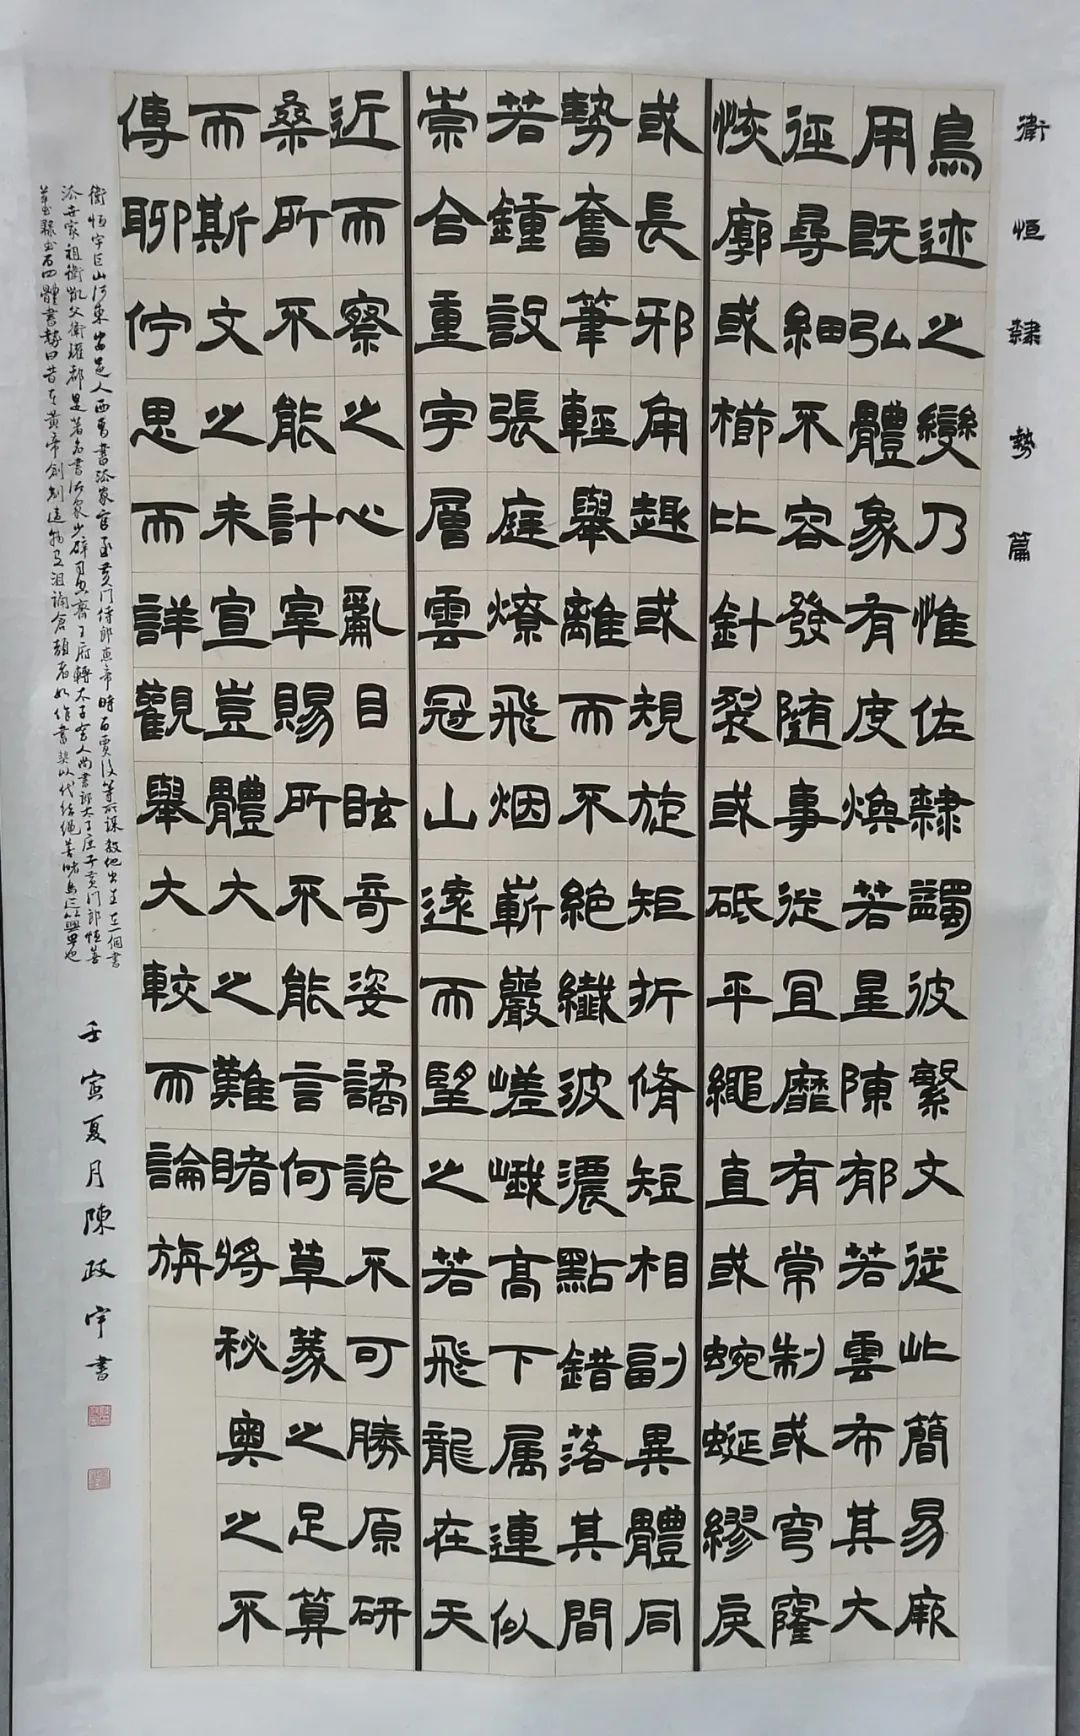 衛恒隸勢篇
鳥迹之變乃惟佐隸蠲彼繁文從此簡易厥
用既弘體象有度焕若星陳郁若雲布其大
徑尋細不容發隨事從宜靡有常制或穹窿
恢廓或櫛比針裂或砥平繩直或蜿蜒繆戾
或長邪角趣或規旋矩折脩短相副異體同
勢奮筆輕舉離而不絶纖波濃點錯落其間
若鍾設張庭燎飛烟嶄巖嵯峨高下属連似
崇合重宇層雲冠山遠而望之若飛龍在天
近而察之心亂目眩奇姿譎詭不可勝原研
桑所不能計宰賜所不能言何草篆之足算
而斯文之未宣豈體大之難睹將秘奥之不
傳聊佇思而詳觀舉大較而論旃
衛恒字巨山河東安邑人西晉書法家官至黄門侍郎惠帝時為賈后等所謀殺他出生在一個書
法世家祖衛凱父衛瓘都是著名書法家少辟司空齊王府轉太子舍人尚書郎太子庶子黄門郎恒善
草書隸書有四體書勢曰昔在黄帝創制造物有沮誦倉頡者始作書契以代結繩蓋睹鳥迹以興思也
壬寅夏月陳政宇書